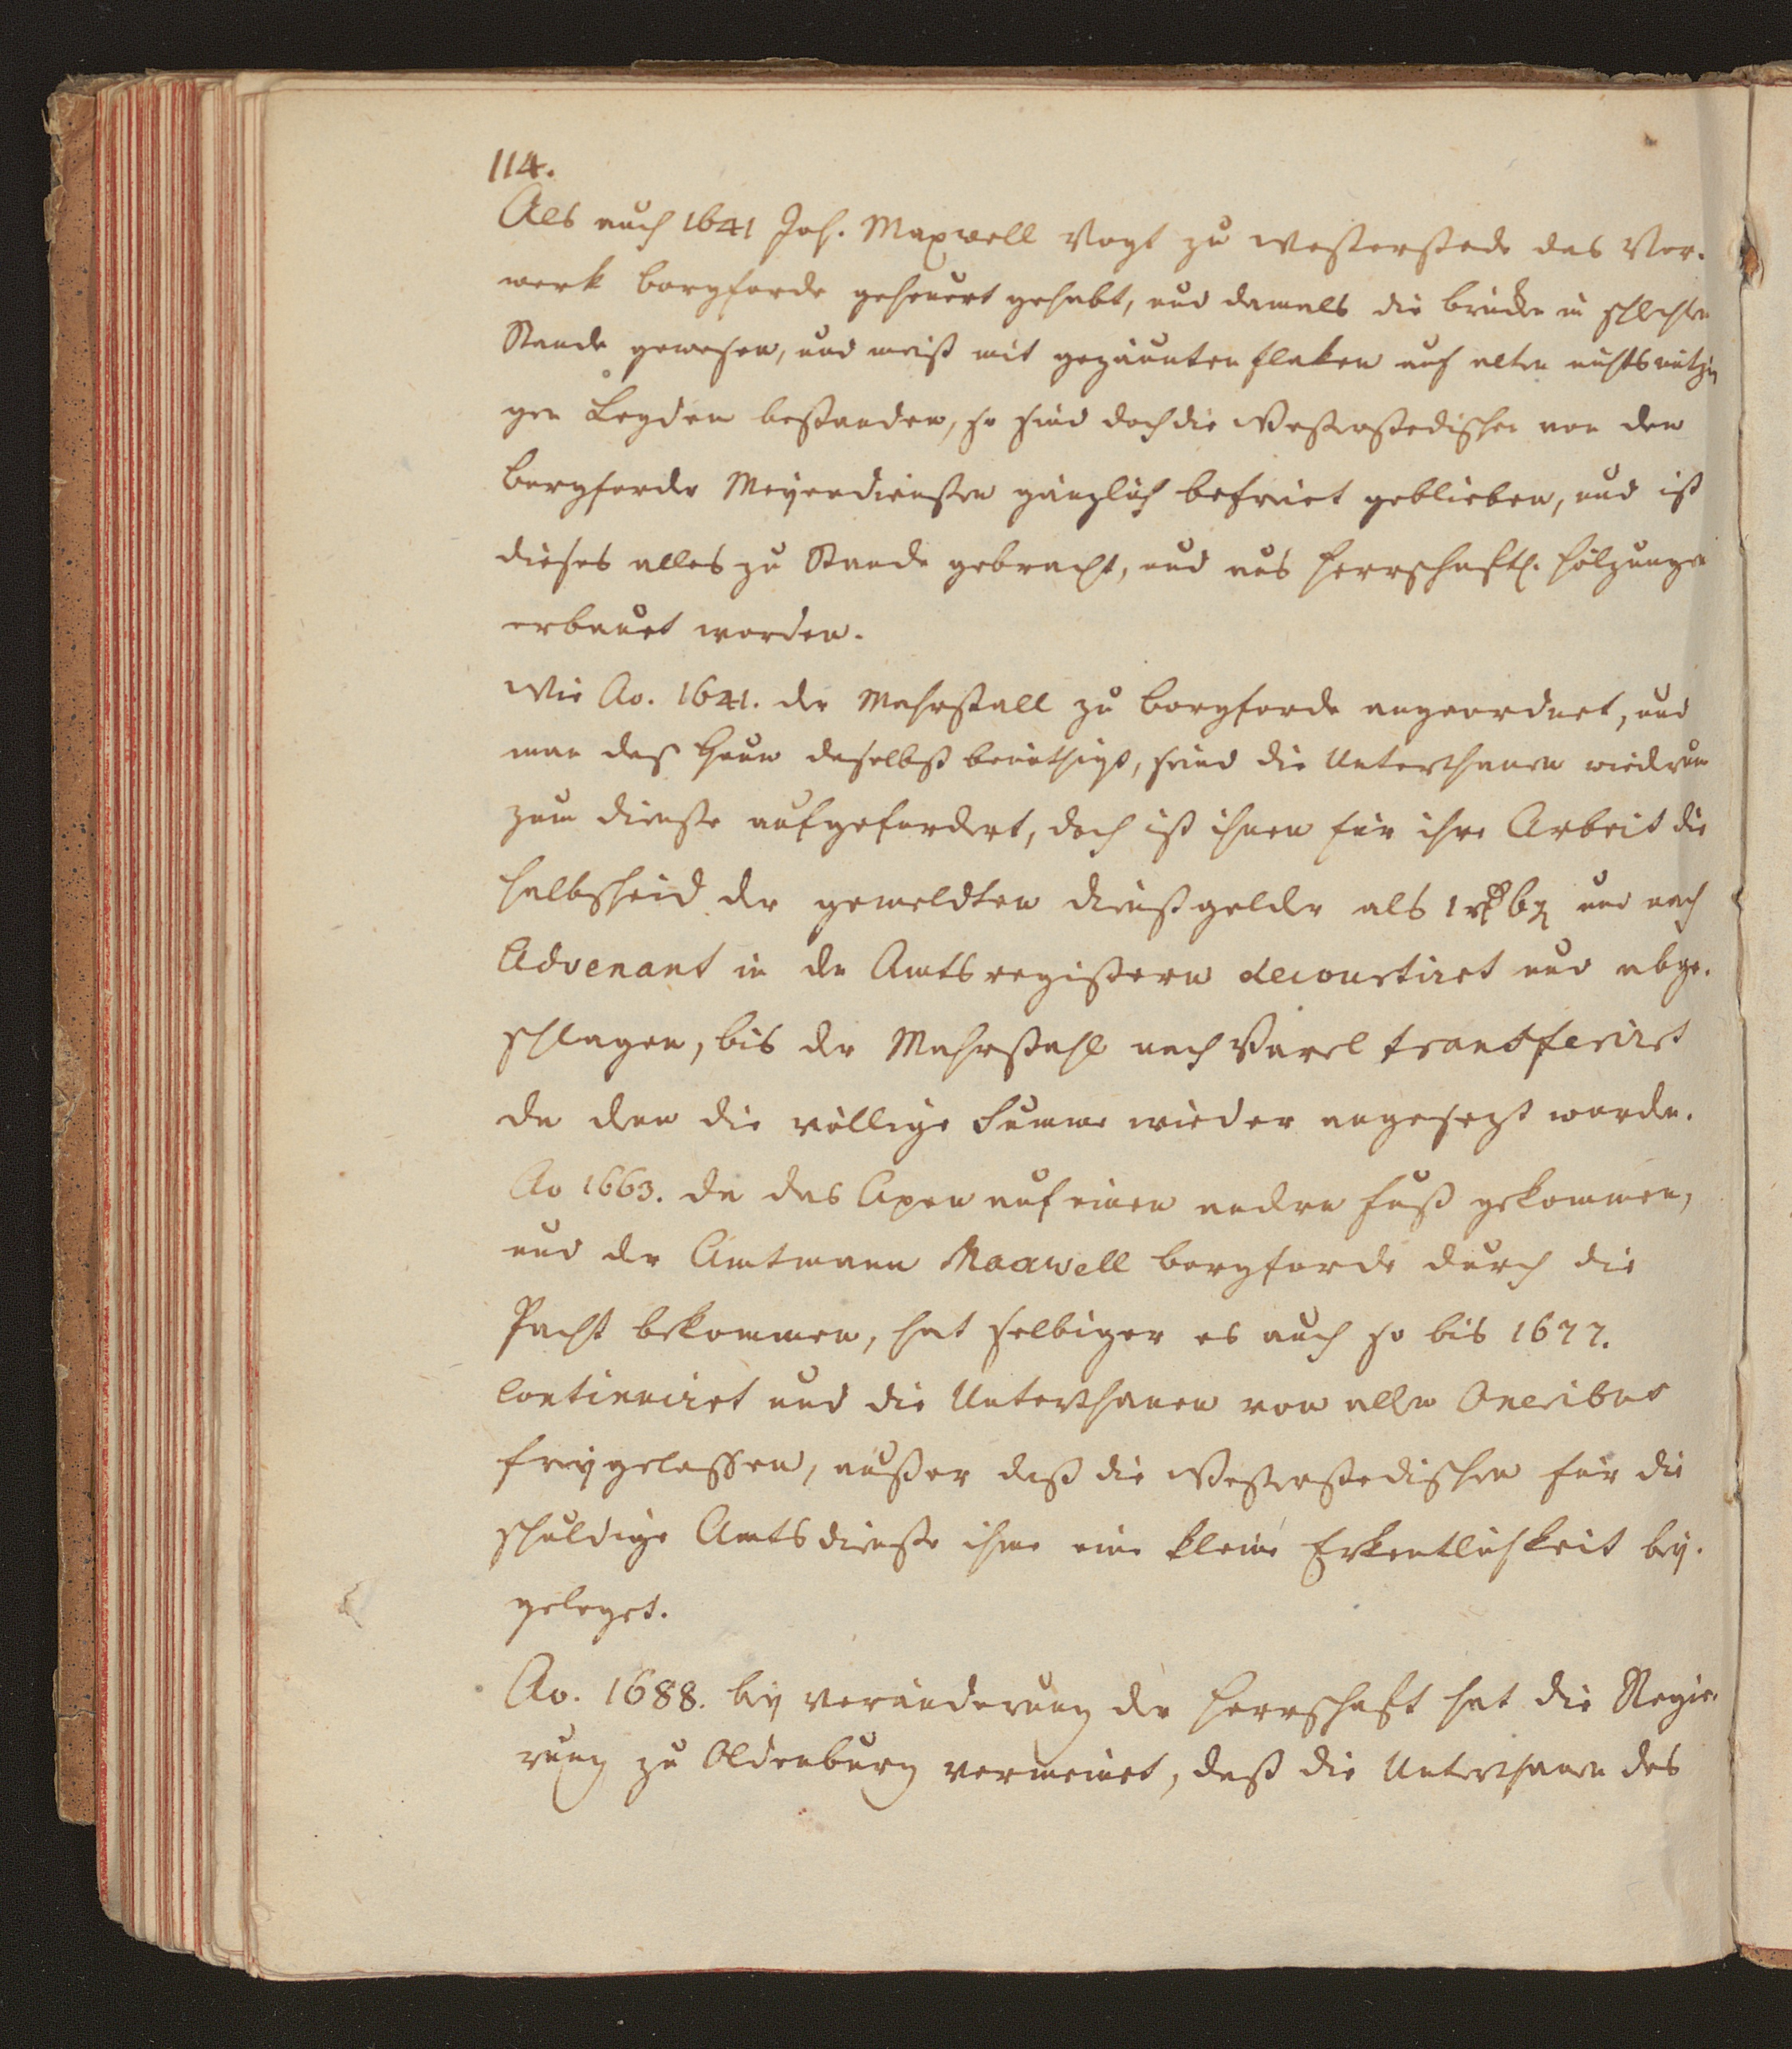 114.
Als auch 1641 Joh. Maxwell Vogt zu Westerstede das Vor-
werk Borgforde geheuert gehabt, und damals die brücke in schlechten
Stande gewesen, und meist mit gezäunten flaken auf alten nichtsnützi
gen Legden bestanden, so sind doch die Westerstedischen von den
Borgforder Meyerdiensten gänzlich befreiet geblieben, und ist
dieses alles zu Stande gebracht, und aus herrschaftl. hölzungen
erbauet worden.
Wie Ao. 1641. der Mahrstall zu Borgforde angeordnet, und
man das heu daselbst benöthigt, sind die Unterthanen wiederum
zum dienste aufgefordert, doch ist ihnen für ihre Arbeit die
halbscheid der gemeldten dienstgelder als 1 rthlr und nach
Advenant in den Amtsregistern decourtiret und abge-
schlagen, bis der Mahrstahl nach Varel transferiret
da den die völlige Summe wieder angesezt worden.
Ao 1663. da das Apen auf einen andern fuß gekommen,
und der Amtmann Maxwell Borgforde durch die
Pacht bekommen, hat selbiger es auch so bis 1677.
continuiret und die Unterthanen von allen Oneribus
freygelassen, außer daß die Westerstedischen für die
schuldige Amtsdienste ihme eine kleine Erkentlichkeit bey-
geleget.
Ao. 1688. bey veränderung der herrschaft hat die Regie-
rung zu Oldenburg vermeinet, daß die Unterthanen des